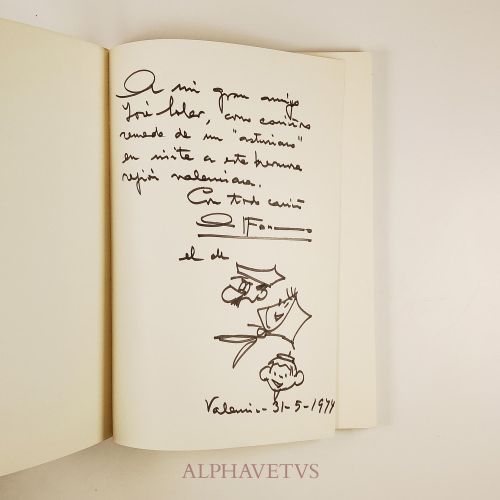 A mi gran amigo
José Soler, como cariñoso
recuerdo de un "asturiano"
en visita a esta hermosa
región valenciana.
Con todo cariño
Alfonso
el de
Valencia - 31-5-1974
ALPHAVETVS